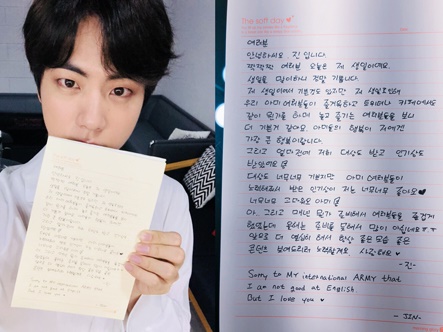 The soft day
여러분
안녕하세요 진 입니다.
짝짝짝 여러분 오늘은 저 생일이에요.
생일을 맞이하니 정말 기쁩니다.
저 생일이어서 기쁜것도 있지만 저 생일로인해
우리 아미 여러분들이 즐거워하고 트위터나 카페에서도
같이 뭔가를 하며 놀고 즐기는 여러분들을 보니
더 기쁜거 같아요. 아미들의 행복이 저에겐
가장 큰 행복이랍니다.
그리고 얼마전에 저희 대상도 받고 인기상도
받았어요
대상도 너무너무 기쁘지만 아미 여러분들이
노력해줘서 받은 인기상이 저는 너무너무 좋아요
너무너무 고마워요 아미
아. 그리고 매년 뭔가 준비해서 여러분들을 즐겁게
했었는데 올해는 준비를 못해서 많이 아쉽네요 ㅠㅠ
앞으로 더 열심히 해서 항상 좋은 모습 좋은
콘텐츠 보여드리려 노력할게요 사랑해요
-진-
Sorry to My international ARMY that
I am not good at English
But I love you
- JIN -